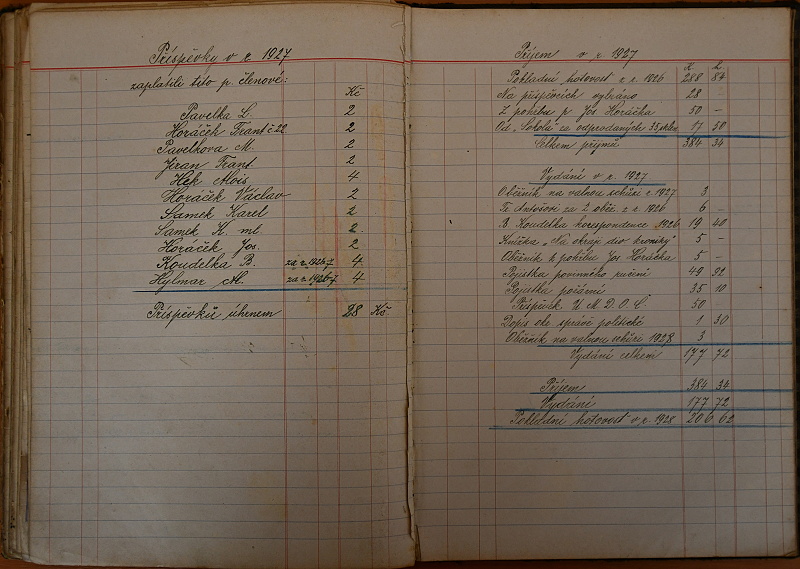 Příspěvky v r. 1927
zaplatili tito p. členové:
Kč
Pavelka L. 2
Horáček Frant. č. 22. 2
Pavelkova M. 2
Jiran Frant 2
Hek Alois 4
Horáček Václav 2
Samek Karel 2
Samek K. ml. 2
Horáček Jos. 2
Koudelka B. za r. 1926-7 4
Hylmar M. za r. 1926-7 4
Příspěvků úhrnem 28 Kč
Příjem v r. 1927
K h
Pokladní hotovost z r. 1926 288 84
Na příspěvcích vybráno 28
Z pohřbu p. Jos. Horáčka 50 –
Od „Sokola" za odprodaných 35 17 50
Celkem příjmů 384 34
Vydání v r. 1927
Oběžník na valnou schůzi r. 1927 3
Fr. Antošovi za 2 oběž. z r. 1926 6 –
B. Koudelka korespondence 1926 19 40
Knížka „Na okraj div. kroniky" 5 –
Oběžník k pohřbu Jos Horáčka 5 –
Pojistka povinného ručení 49 92
Pojistka požární 35 10
Příspěvek U. M. D. O. Č. 50 –
Dopis okr. správě politické 1 30
Oběžník na valnou schůzi 1928 3
Vydání celkem 177 72
Příjem 384 34
Vydání 177 72
Pokladní hotovost v r. 1928 206 62